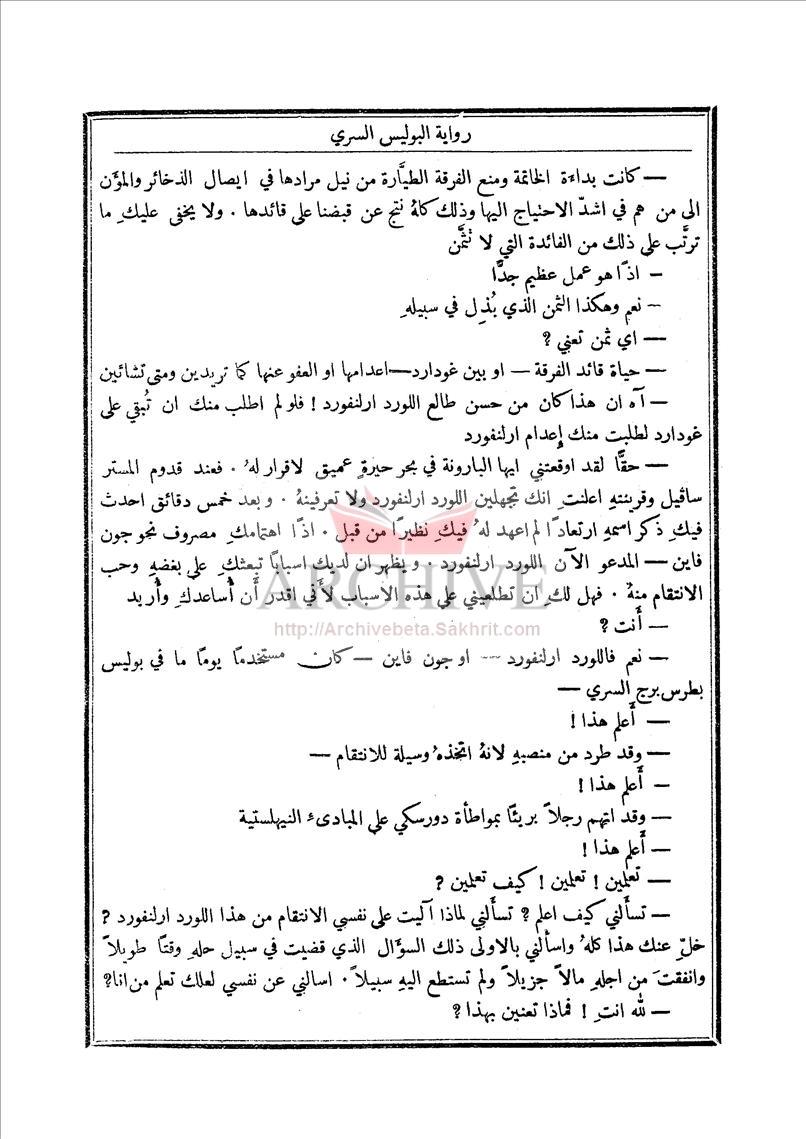 رواية البوليس السري
— كانت بداءة الخاتمة ومنع الفرقة الطيَّارة من نيل مرادها في ايصال الذخائر والمؤَن
الى من هم في اشدّ الاحتياج اليها وذلك كلهُ نتج عن قبضنا على قائدها . ولا يخفى عليكِ ما
ترتَّب على ذلك من الفائدة التي لا تثمَّن
— اذًا هو عمل عظيم جدًّا
— نعم وهكذا الثمن الذي بُذِل في سبيلهِ
— اي ثمن تعني ?
— حياة قائد الفرقة — او بين غودارد—اعدامها او العفو عنها كما تريدين ومتى تشائين
— آه ان هذا كان من حسن طالع اللورد ارلنفورد ! فلو لم اطلب منك ان تُبقي على
غودارد لطلبت منك إِعدام ارلنفورد
— حقًّا لقد اوقعتني ايها البارونة في بحر حيرةٍ عميق لاقرار لهُ . فعند قدوم المستر
ساڤيل وقرينتهِ اعلنتِ انك تجهلين اللورد ارلنفورد ولا تعرفينهُ . وبعد خمس دقائق احدث
فيكِ ذكر اسمهِ ارتعادًا لم اعهد لهُ فيكِ نظيرًا من قبل . اذًا اهتمامكِ مصروف نحو جون
فاين — المدعو الآن اللورد ارلنفورد . ويظهر ان لديك اسبابًا تبعثكِ على بغضهِ وحب
الانتقام منهُ . فهل لكِ ان تطلعيني على هذه الاسباب لأَني اقدر أَن أُساعدكِ وأُريد
ARCHIVE
http://Archivebeta.Sakhrit.com
— أَنت ?
— نعم فاللورد ارلنفورد — او جون فاين — كان مستخدمًا يومًا ما في بوليس
بطرس برج السري —
— أَعلم هذا !
— وقد طرد من منصبهِ لانهُ اتخذهُ وسيلة للانتقام —
— أَعلم هذا !
— وقد اتهم رجلاً بريئًا بمواطأة دورسكي على المبادئ النيهلستية
— أَعلم هذا !
— تعلمين ! تعلمين ! كيف تعلمين ?
— تسأَلني كيف اعلم ? تسأَلني لماذا آليت على نفسي الانتقام من هذا اللورد ارلنفورد ?
خلِّ عنك هذا كلهُ واسألني بالاولى ذلك السؤَال الذي قضيت في سبيل حلهِ وقتًا طويلاً
وانفقتَ من اجلهِ مالاً جزيلاً ولم تستطع اليهِ سبيلاً . اسالني عن نفسي لعلك تعلم من انا ?
— لله انتِ ! فماذا تعنين بهذا ?